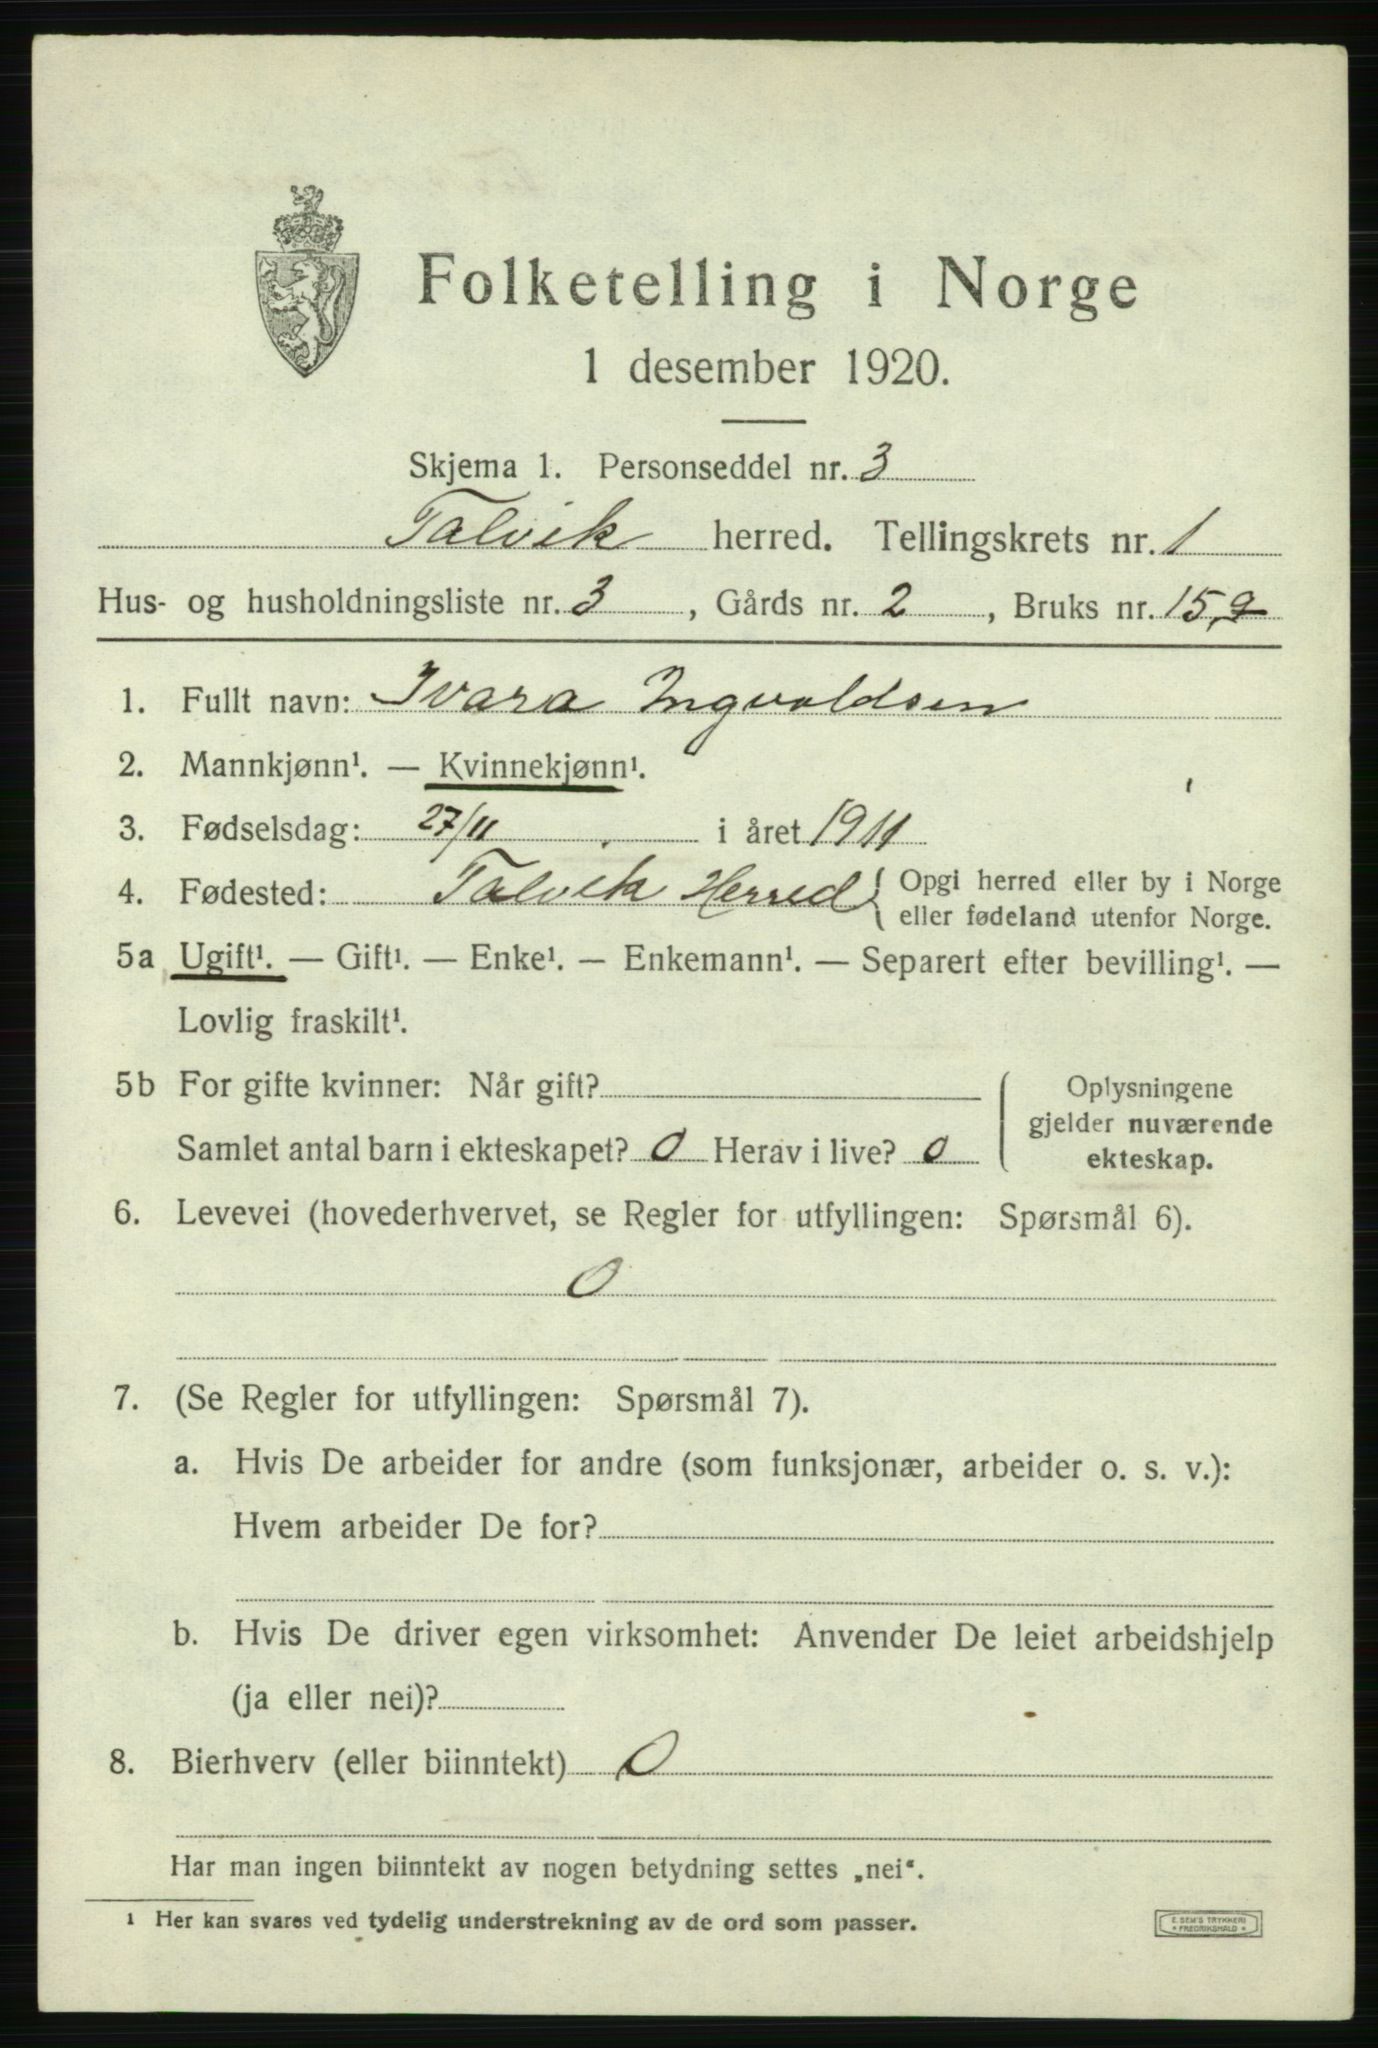 Folketelling i Norge
1 desember 1920.
Skjema 1. Personseddel nr. 3
Talvik herred. Tellingskrets nr. 1
Hus- og husholdningsliste nr. 3, Gårds nr. 2, Bruks nr. 15,9
1. Fullt navn: Ivara Ingvaldsen
2. Mannkjønn¹. — Kvinnekjønn¹.
3. Fødselsdag: 27/11 i året 1911
4. Fødested: Talvik Herred { Opgi herred eller by i Norge
eller fødeland utenfor Norge.
5a Ugift¹. — Gift¹. — Enke¹. — Enkemann¹. — Separert efter bevilling¹. —
Lovlig fraskilt¹.
5b For gifte kvinner: Når gift?
Samlet antal barn i ekteskapet? 0 Herav i live? 0
Oplysningene
gjelder nuværende
ekteskap.
6. Levevei (hovederhvervet, se Regler for utfyllingen: Spørsmål 6).
0
7. (Se Regler for utfyllingen: Spørsmål 7).
a. Hvis De arbeider for andre (som funksjonær, arbeider o. s. v.):
Hvem arbeider De for?
b. Hvis De driver egen virksomhet: Anvender De leiet arbeidshjelp
(ja eller nei)?
8. Bierhverv (eller biinntekt) 0
Har man ingen biinntekt av nogen betydning settes „nei“.
¹ Her kan svares ved tydelig understrekning av de ord som passer.
E. SEM'S TRYKKERI
* FREDRIKSHALD *